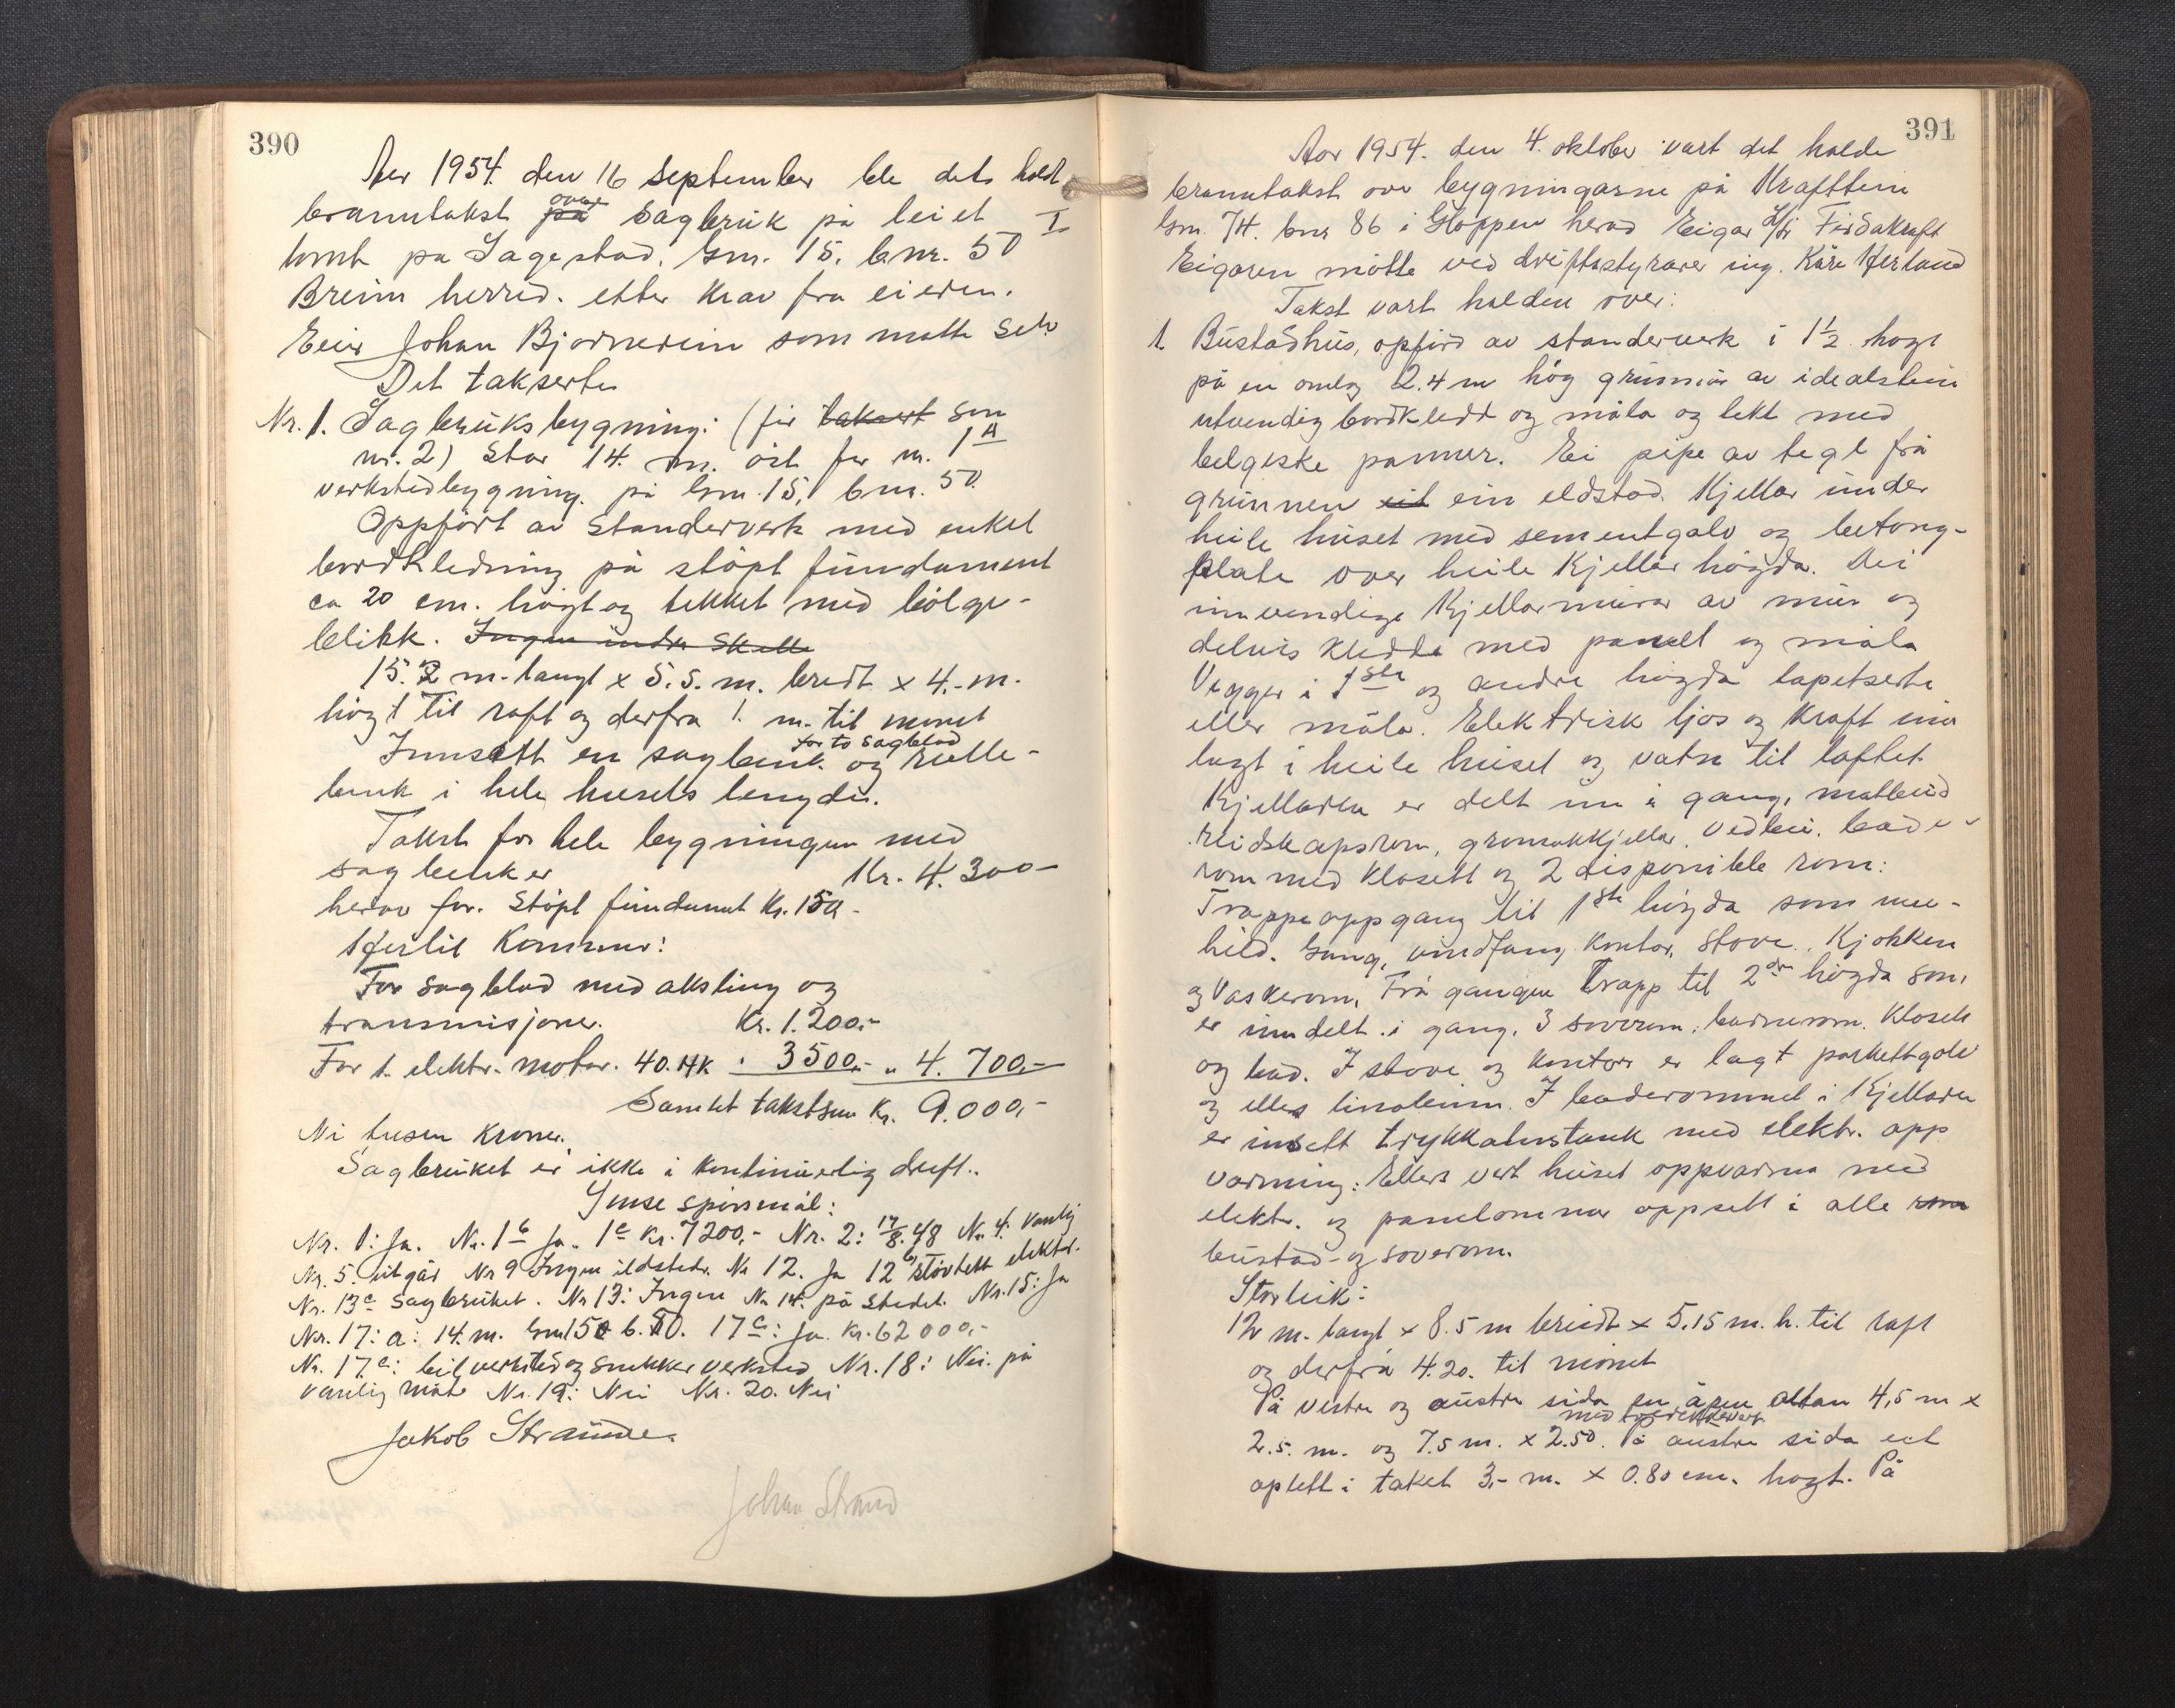 390
Aar 1954. den 16 September ble det holdt
branntakst over på Sagbruk på leiet
tomt på Sagestad. Gnr. 15. bnr. 50 I
Breim herred. etter krav fra eieren.
Eier Johan Bjørnereim som møtte selv
Det takserte
Nr. 1. Sagbruksbygning: (før taksert som
nr. 2) Står 14. m. øst for nr. 1 A
verkstedbygning. på Gnr. 15, bnr. 50.
Oppført av standerverk med enkel
bordkledning på støpt fundament
ca 20 cm. høgt og tekket med bølge-
blikk. Ingen indre skille
15.2 m. langt x 5.5. m. bredt x 4.- m.
høgt til raft og derfra 1. m. til mønet
Innsatt en sagbenk for to sagblad og rulle-
benk i hele husets lengde.
Takst for hele bygningen med
sagbenker Kr. 4.300-
herav for. Støpt fundament Kr. 150.-
Hertil kommer:
For sagblad med aksling og
transmisjoner. Kr. 1.200.-
For 1. elektr. motor. 40. HK " 3500.- " 4.700.-
Samlet takstsum Kr. 9.000,-
Ni tusen kroner.
Sagbruket er ikke i kontinuerlig drift.
Ymse spørsmål:
Nr. 1: Ja. Nr. 1 b Ja. 1 c Kr. 7200,- Nr. 2: 17/8. 48 Nr. 4. Vanlig
Nr. 5. utgår Nr 9 Ingen ildsteder Nr 12. Ja 12 b støvtett elektr.
Nr. 13 c Sagbruket. Nr 13: Ingen Nr 14. på stedet. Nr. 15: Ja
Nr. 17: a: 14. m. Gnr 15 b. 50. 17 c: Ja. Kr. 62000,-
Nr. 17 e: bilverksted og snekkerverksted Nr. 18: Nei. på
vanlig måte Nr. 19: Nei Nr. 20. Nei
Jakob Straume.
Johan Strand
391
Aar 1954. den 4. oktober vart det halde
branntakst over bygningarne på
Gnr. 74. bnr 86 i Gloppen herad Eigar Firdakraft
Eigaren møtte ved driftsstyrarer ing. Kåre
Takst vart halden over:
1. Bustadhus, oppførd av standerverk i 1 1/2 høgd
på en omlag 2.4 m høg grunnmur av idealstein
utvendig bordkledd og måla og tekt med
belgiske panner. Ei pipe av tegl frå
grunnen ein eldstad. Kjellar under
heile huset med sementgolv og betong-
plate over heile kjellarhøgda. Dei
innvendige kjellarmurar av mur og
delvis kledde med panell og måla
Vegger i 1ste og andre høgda tapetserte
eller måla. Elektrisk ljos og kraft inn
lagt i heile huset og vatn til loftet.
Kjellaren er delt inn i gang, matbud
reidskapsrom, grønsakkjellar, vedbu. bade-
rom med klosett og 2 disponible rom:
Trappeoppgang til 1ste høgda som inne-
held. Gang, vindfang, kontor, stove. Kjøkken
og vaskerom, Frå gangen trapp til 2dre høgda som
er inndelt i gang, 3 soverom, barnerom. Klosett
og bad. I stove og kontor er lagt parkettgolv
og elles linoleum. I baderommet i kjellaren
er innsett trykkvasstank med elektr. opp
varming: Ellers vert huset oppvarma med
elektr. og panelomnar oppsett i alle rom
bustad- og soverom.
Storleik:
12 m. langt x 8.5 m breidt x 5,15 m. h. til raft
og derfrå 4.20. til mønet
På vestre og austre sida en åpen altan 4,5 m x
2.5. m. og 7.5 m. x 2.50. På austre sida eit
oplett i taket 3,- m. x 0.80 cm. høgt. På